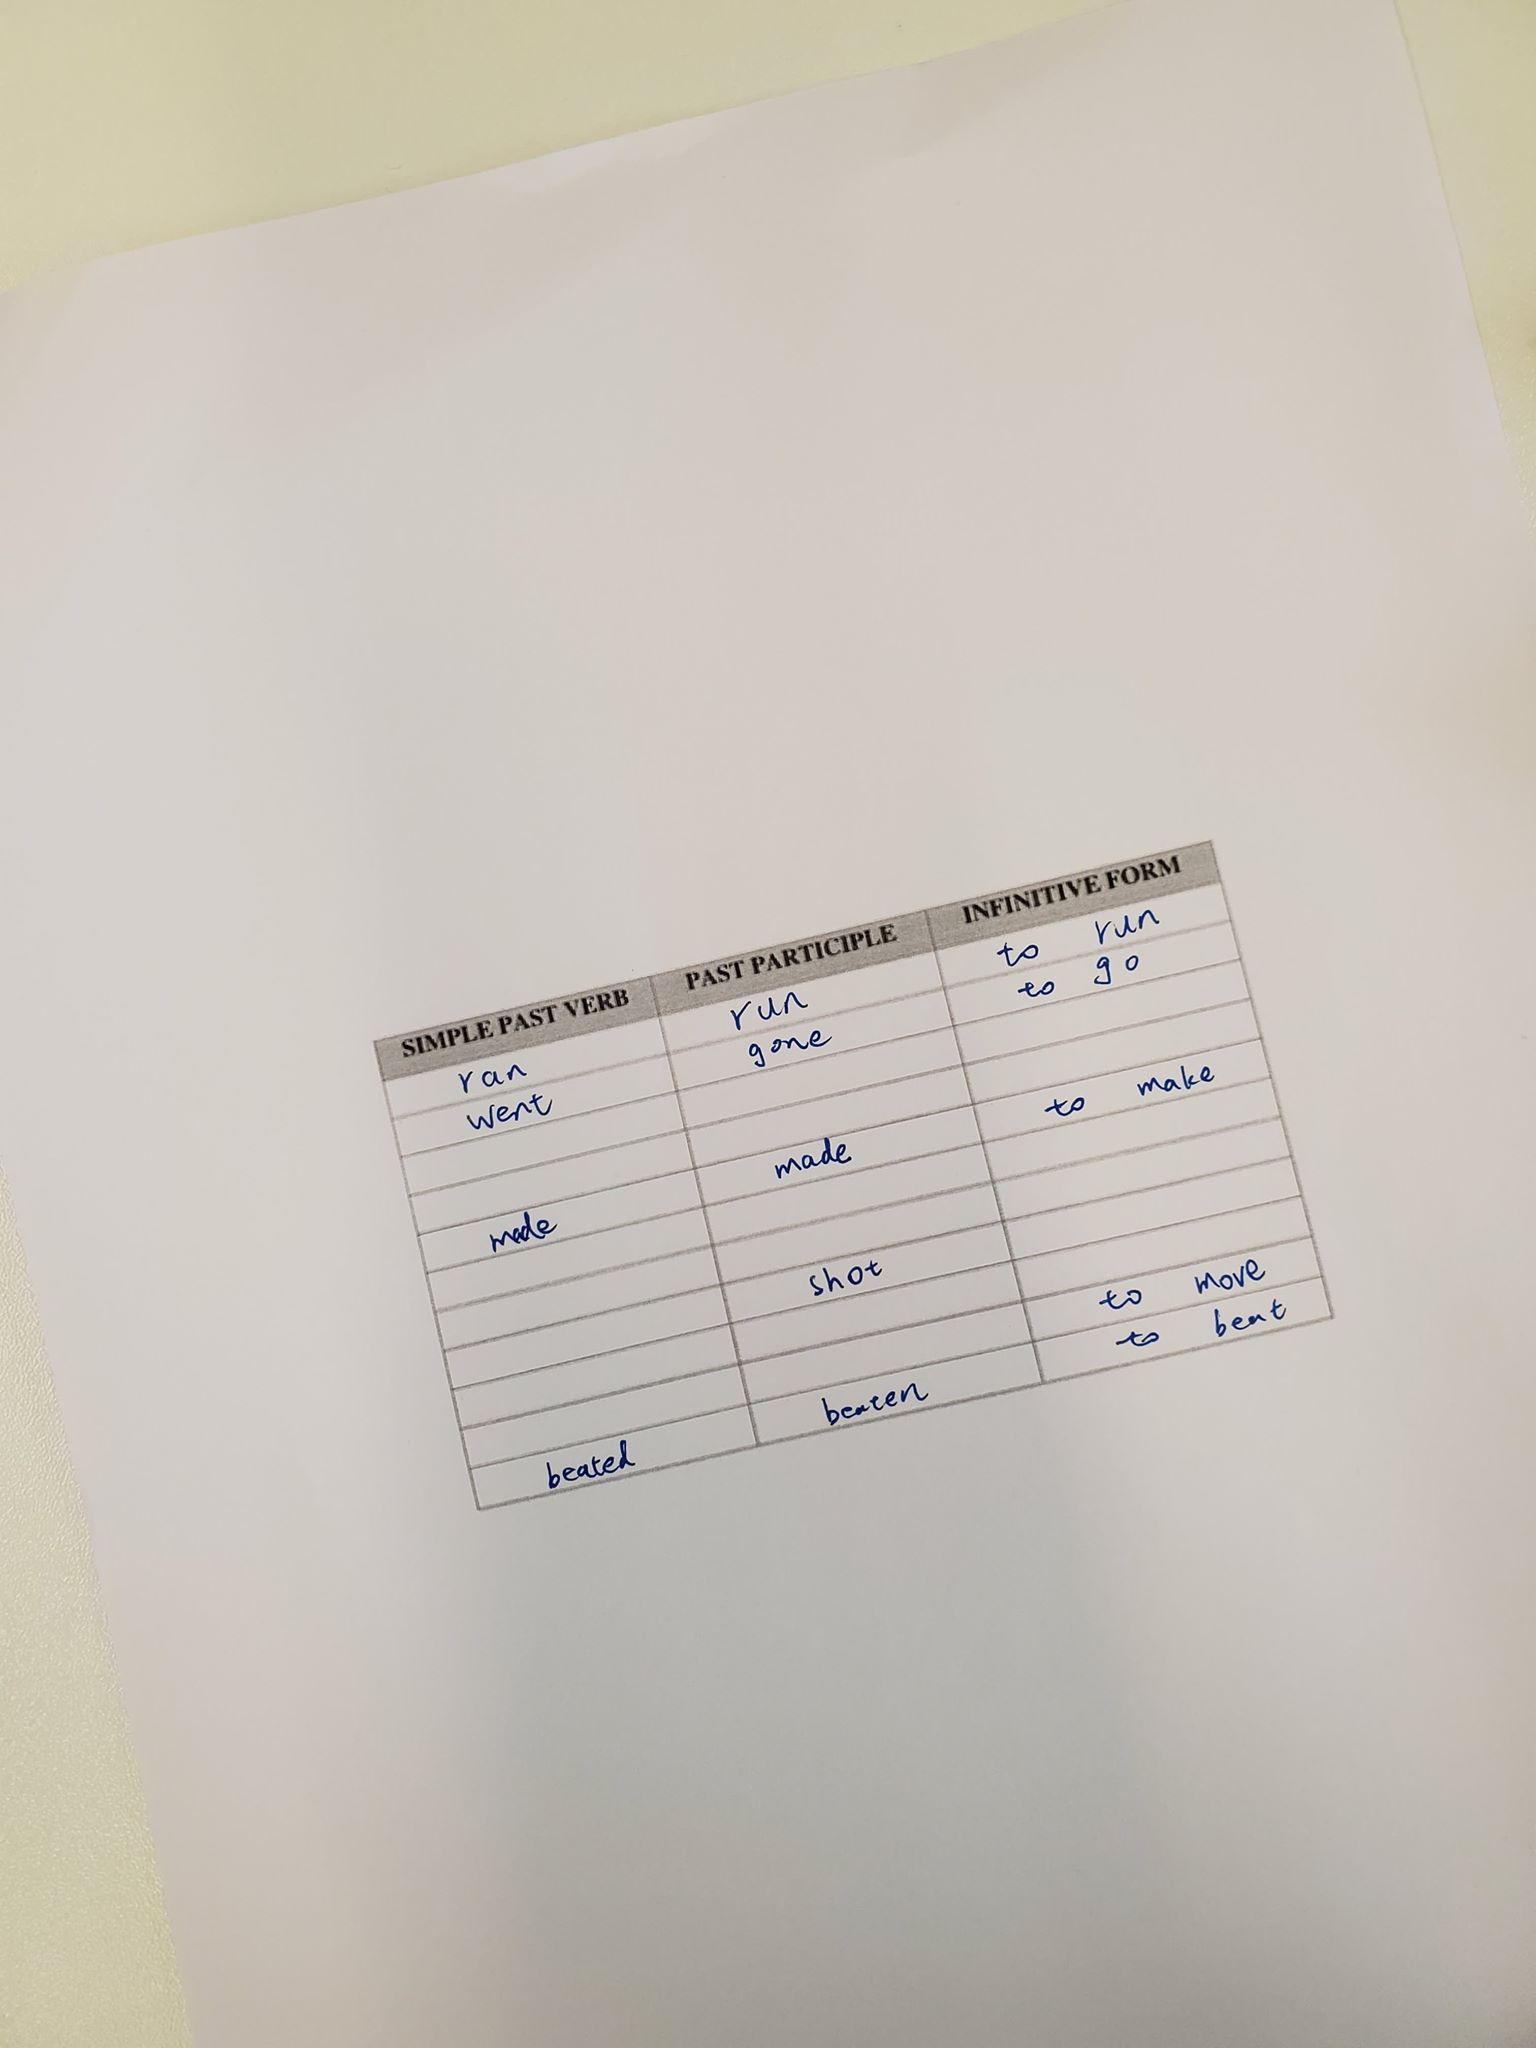 SIMPLE PAST VERB PAST PARTICIPLE INFINITIVE FORM
ran run to run
went gone to go
made made to make
shot
to move
beated beaten to beat